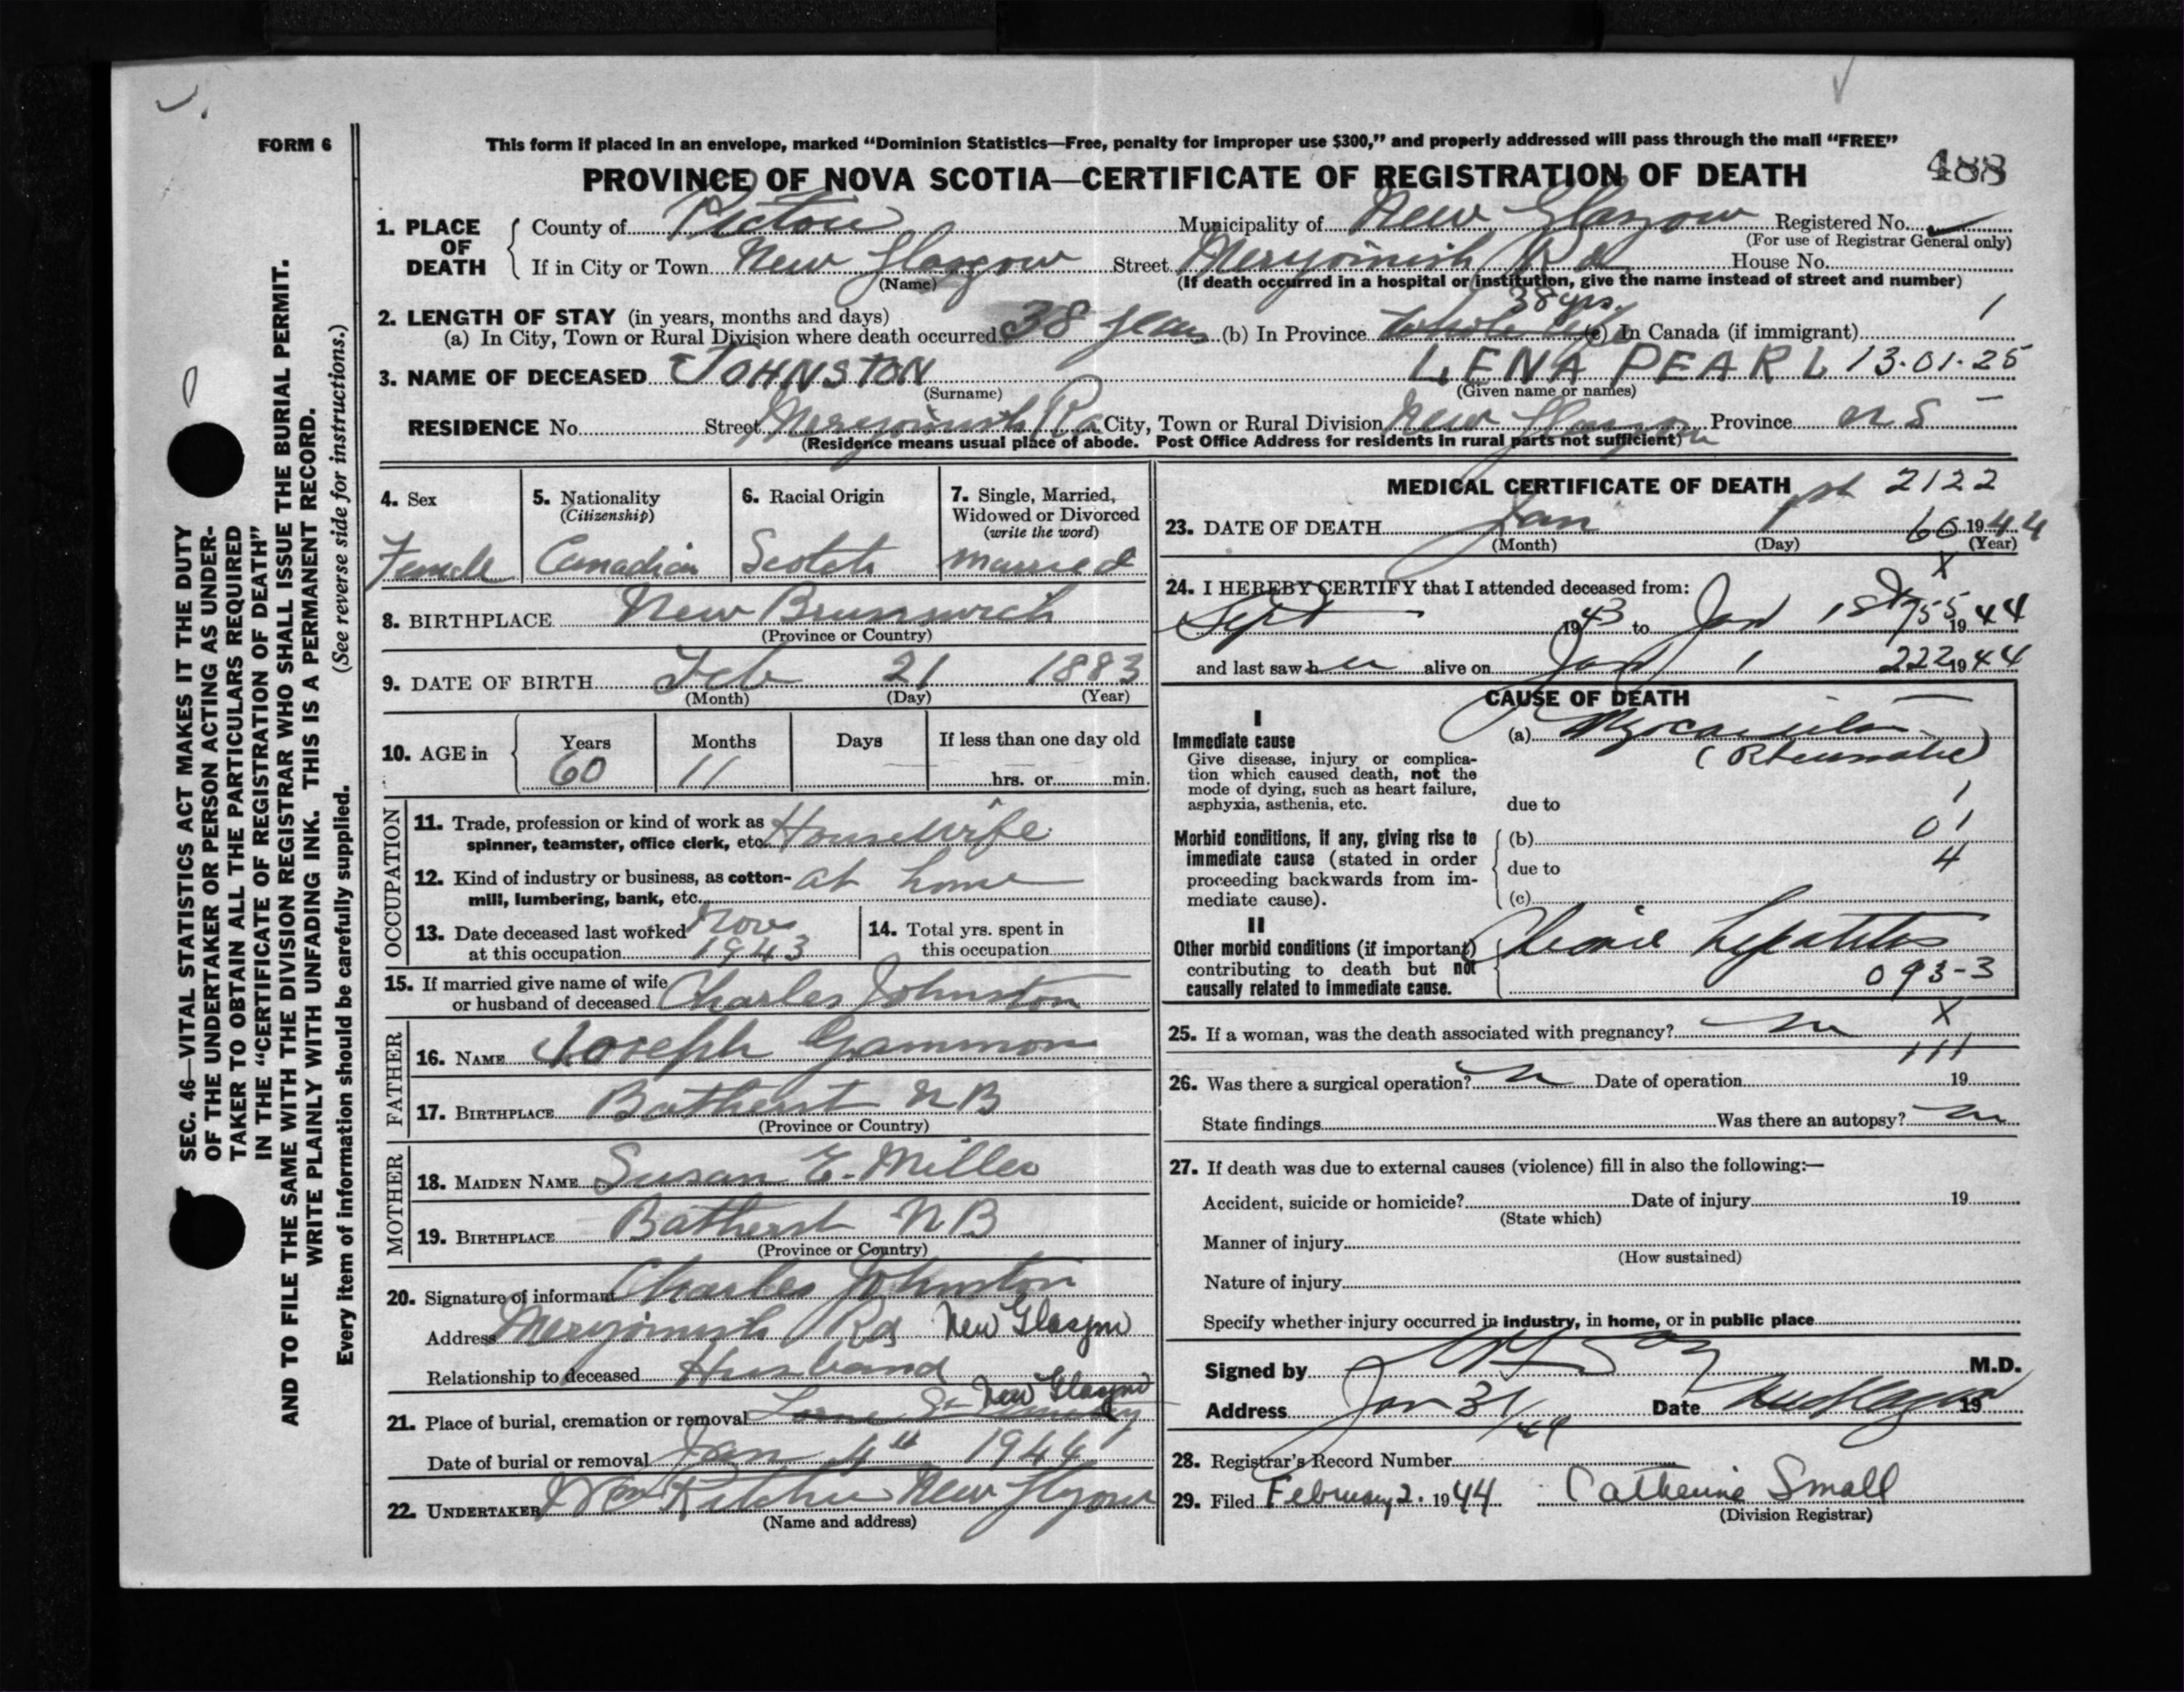 FORM 6
This form if placed in an envelope, marked "Dominion Statistics—Free, penalty for improper use $300," and properly addressed will pass through the mail "FREE"
PROVINCE OF NOVA SCOTIA—CERTIFICATE OF REGISTRATION OF DEATH
488
1. PLACE OF DEATH
County of Pictou Municipality of New Glasgow Registered No.
(For use of Registrar General only)
If in City or Town New Glasgow Street Merigomish Rd House No.
(Name)
(If death occurred in a hospital or institution, give the name instead of street and number)
38 yrs.
2. LENGTH OF STAY (in years, months and days)
(a) In City, Town or Rural Division where death occurred 38 years (b) In Province whole life (c) In Canada (if immigrant) 1
3. NAME OF DECEASED JOHNSTON LENA PEARL 13.01.25
(Surname) (Given name or names)
RESIDENCE No. Street Merigomish Rd City, Town or Rural Division New Glasgow Province N S
(Residence means usual place of abode. Post Office Address for residents in rural parts not sufficient)
4. Sex
Female
5. Nationality
(Citizenship)
Canadian
6. Racial Origin
Scotch
7. Single, Married, Widowed or Divorced
(write the word)
married
8. BIRTHPLACE New Brunswick
(Province or Country)
9. DATE OF BIRTH Feb 21 1883
(Month) (Day) (Year)
10. AGE in Years Months Days If less than one day old
60 11 hrs. or min.
OCCUPATION
11. Trade, profession or kind of work as
spinner, teamster, office clerk, etc. Housewife
12. Kind of industry or business, as cotton-
mill, lumbering, bank, etc. at home
13. Date deceased last worked Nov
at this occupation 1943
14. Total yrs. spent in
this occupation
15. If married give name of wife
or husband of deceased Charles Johnston
FATHER
16. NAME Joseph Gammon
17. BIRTHPLACE Batherst N B
(Province or Country)
MOTHER
18. MAIDEN NAME Susan E. Miller
19. BIRTHPLACE Batherst N B
(Province or Country)
20. Signature of informant Charles Johnston
Address Merigomish Rd New Glasgow
Relationship to deceased Husband
New Glasgow
21. Place of burial, cremation or removal Lorne St Cemetery
Date of burial or removal Jan 4th 1944
22. UNDERTAKER Wm Ritchie New Glasgow
(Name and address)
MEDICAL CERTIFICATE OF DEATH
2122
23. DATE OF DEATH Jan 1st 60 1944
(Month) (Day) (Year)
X
24. I HEREBY CERTIFY that I attended deceased from:
Sept 1943 to Jan 1st 755 1944
and last saw her alive on Jan 1 222 1944
CAUSE OF DEATH
I
Immediate cause
Give disease, injury or complica-
tion which caused death, not the
mode of dying, such as heart failure,
asphyxia, asthenia, etc.
(a) Myocarditis
(Rheumatic)
due to 1
Morbid conditions, if any, giving rise to
immediate cause (stated in order
proceeding backwards from im-
mediate cause).
(b) 01
due to 4
(c)
II
Other morbid conditions (if important)
contributing to death but not
causally related to immediate cause.
Chronic Hepatitis
093-3
X
25. If a woman, was the death associated with pregnancy? no
111
26. Was there a surgical operation? no Date of operation 19
State findings Was there an autopsy? no
27. If death was due to external causes (violence) fill in also the following:—
Accident, suicide or homicide? Date of injury 19
(State which)
Manner of injury
(How sustained)
Nature of injury
Specify whether injury occurred in industry, in home, or in public place
Signed by M.D.
Address Jan 31/44 Date New Glasgow 19
28. Registrar's Record Number
29. Filed February 2. 1944 Catherine Small
(Division Registrar)
SEC. 46—VITAL STATISTICS ACT MAKES IT THE DUTY
OF THE UNDERTAKER OR PERSON ACTING AS UNDER-
TAKER TO OBTAIN ALL THE PARTICULARS REQUIRED
IN THE "CERTIFICATE OF REGISTRATION OF DEATH"
AND TO FILE THE SAME WITH THE DIVISION REGISTRAR WHO SHALL ISSUE THE BURIAL PERMIT.
WRITE PLAINLY WITH UNFADING INK. THIS IS A PERMANENT RECORD.
Every item of information should be carefully supplied. (See reverse side for instructions.)